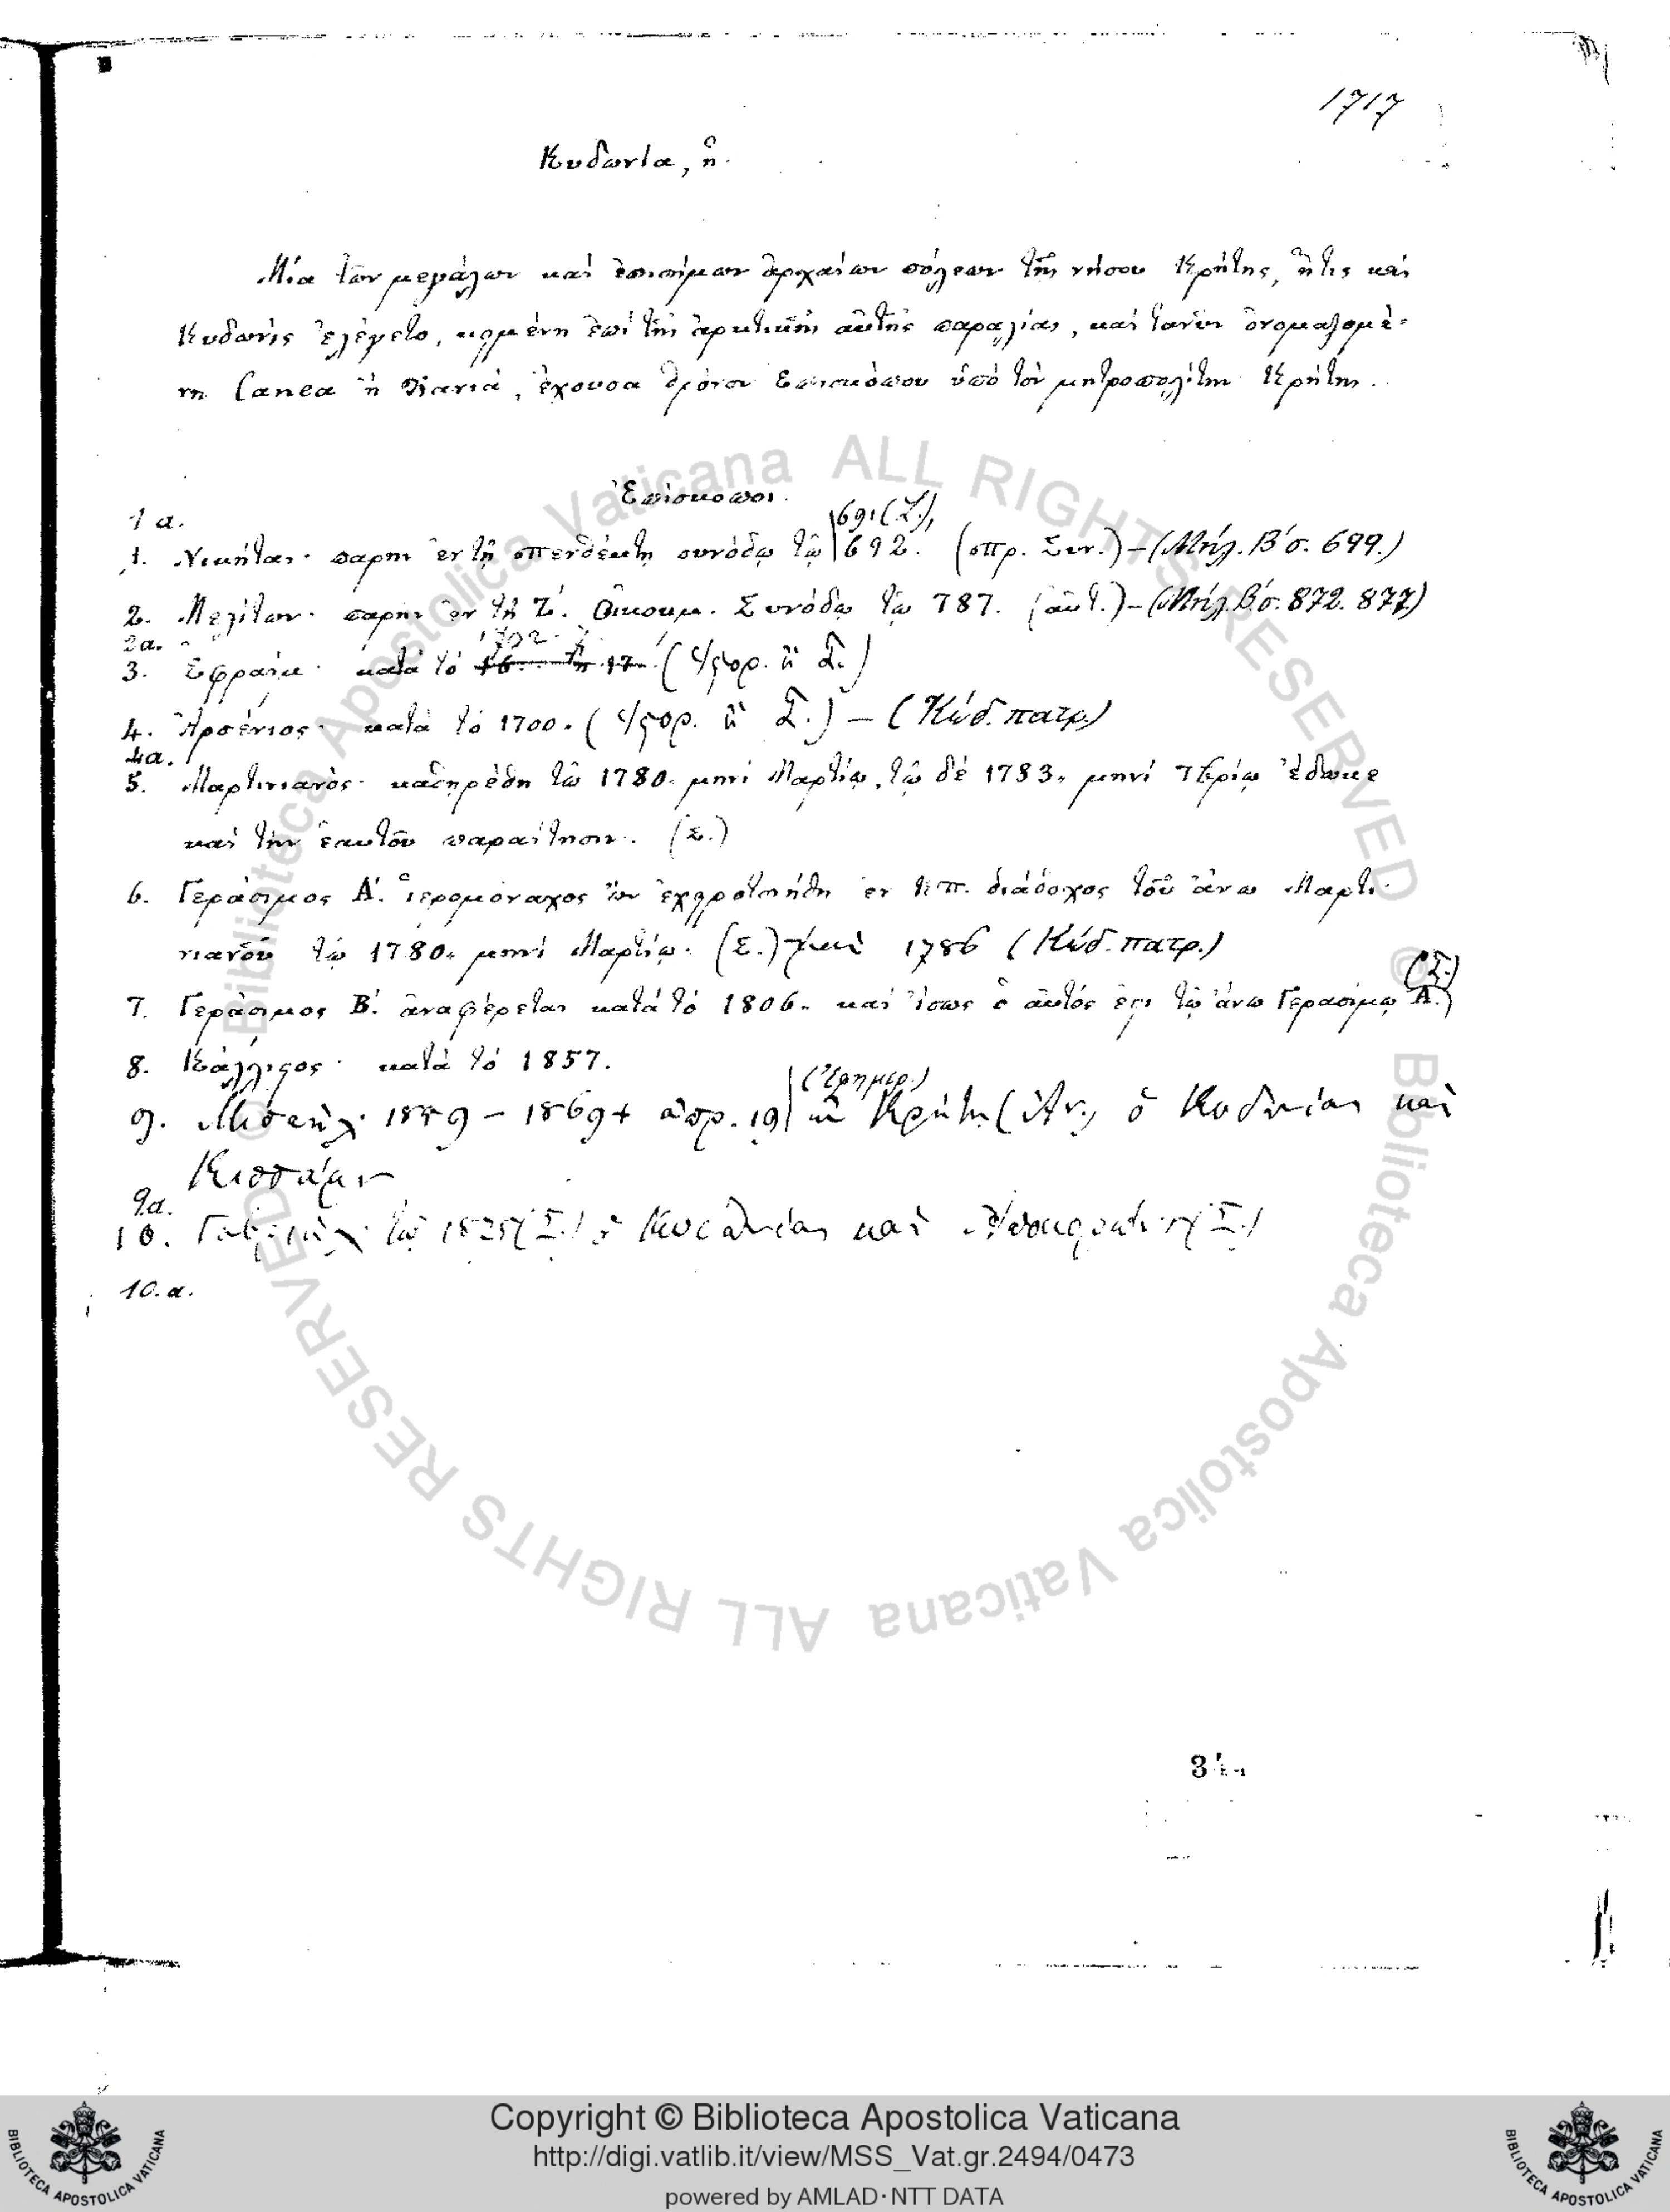 1717
Κυδωνία, ἡ.
Μία τῶν μεγάλων καὶ ἐπισήμων ἀρχαίων πόλεων τῆς νήσου Κρήτης, ἥτις καὶ
Κυδωνὶς ἐλέγετο, κειμένη ἐπὶ τῆς ἀρκτικῆς αὐτῆς παραλίας, καὶ τανῦν ὀνομαζομέ-
νη Canea ἢ Χανιά, ἔχουσα θρόνον Ἐπισκόπου ὑπὸ τὸν μητροπολίτην Κρήτης.
Ἐπίσκοποι.
1 α.
691 (Σ.),
1. Νικήτας· παρῆν ἐν τῇ πενθέκτῃ συνόδῳ τῷ 692. (πρ. Συν.) – (Μήλ. Β' σ. 699.)
2. Μελίτων· παρῆν ἐν τῇ Ζ'. Οἰκουμ. Συνόδῳ τῷ 787. (αὐτ.) – (Μήλ. Β' σ. 872. 877)
2α.
3. Ἐφραίμ· κατὰ τὸ
4. Ἀρσένιος· κατὰ τὸ 1700. – (Κώδ. πατρ.)
4α.
5. Μαρτινιανός· καθηρέθη τῷ 1780. μηνὶ Μαρτίῳ, τῷ δὲ 1783. μηνὶ 7βρίῳ ἔδωκε
καὶ τὴν ἑαυτοῦ παραίτησιν. (Σ.)
6. Γεράσιμος Α'. ἱερομόναχος ὢν ἐχειροτονήθη ἐν Κπ. διάδοχος τοῦ ἄνω Μαρτι-
νιανοῦ τῷ 1780. μηνὶ Μαρτίῳ. (Σ.) καὶ 1786 (Κώδ. πατρ.)
(Σ.)
7. Γεράσιμος Β'. ἀναφέρεται κατὰ τὸ 1806. καὶ ἴσως ὁ αὐτός ἐστι τῷ ἄνω Γερασίμῳ Α'.
8. Κάλλιστος· κατὰ τὸ 1857.
(Ἐφημερ.)
9. Μισαὴλ· 1859 – 1869 + ἀπρ. 19 ἐν Κρήτῃ ὁ Κυδωνίας καὶ
Κισσάμου
9α.
10. Γαβριὴλ· τῷ (Σ.) ὁ Κυδωνίας καὶ (Σ.)
10. α.
Copyright © Biblioteca Apostolica Vaticana
http://digi.vatlib.it/view/MSS_Vat.gr.2494/0473
powered by AMLAD·NTT DATA
BIBLIOTECA APOSTOLICA VATICANA
BIBLIOTECA APOSTOLICA VATICANA
Biblioteca Apostolica Vaticana ALL RIGHTS RESERVED ©
Biblioteca Apostolica Vaticana ALL RIGHTS RESERVED ©